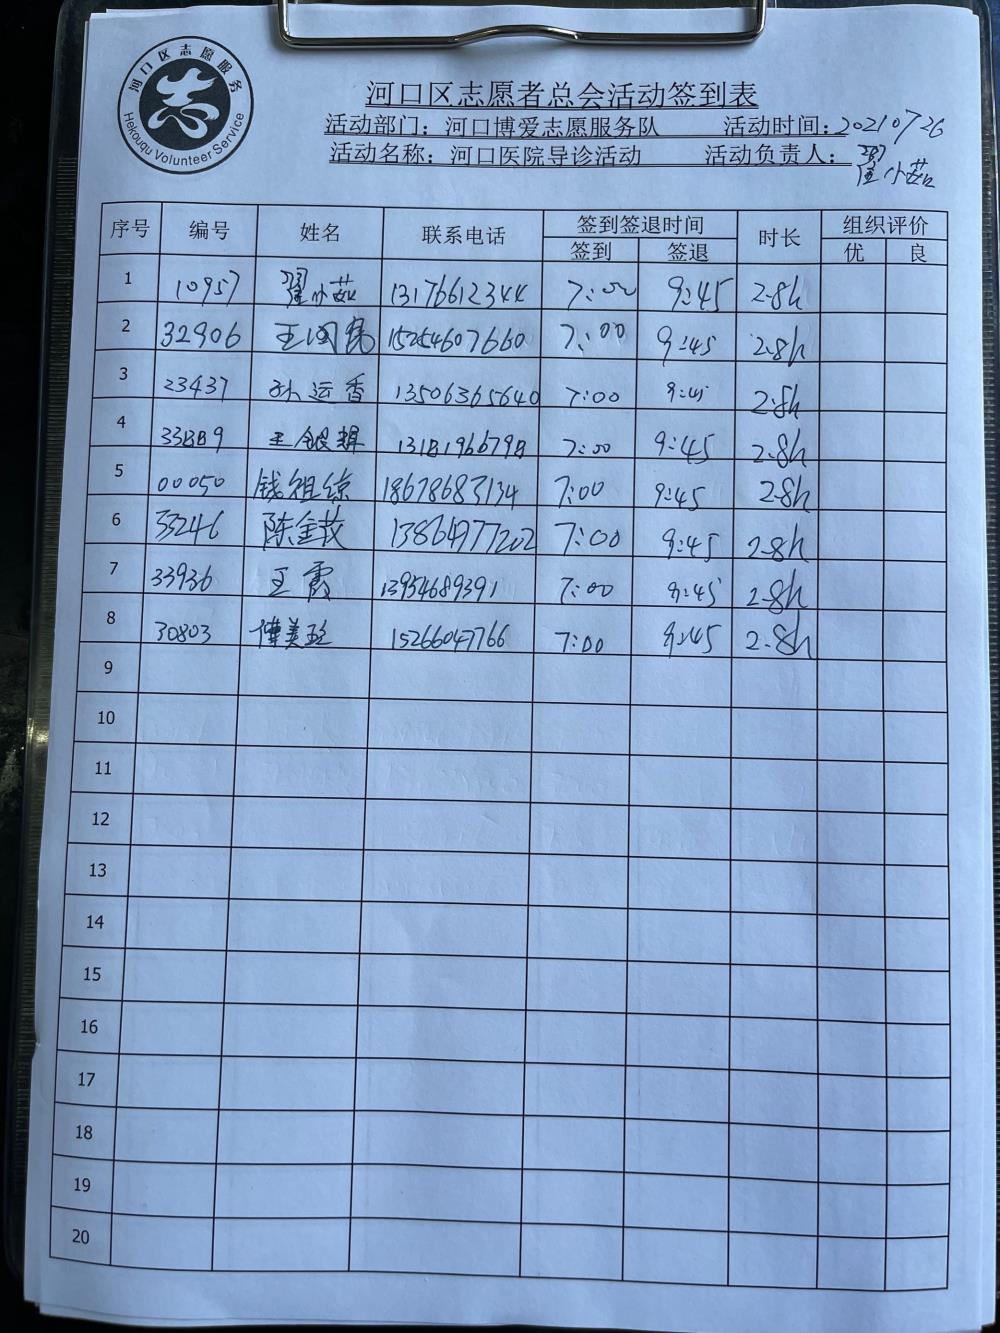 河口区志愿服务
Hekouqu Volunteer Service
河口区志愿者总会活动签到表
活动部门：河口博爱志愿服务队 活动时间：20210726
活动名称：河口医院导诊活动 活动负责人：翟小茹
序号 编号 姓名 联系电话 签到签退时间 时长 组织评价
签到 签退 优 良
1 10957 翟小茹 13176612344 7:00 9:45 2.8h
2 32906 王闵亮 15254607660 7:00 9:45 2.8h
3 23437 孙运香 13506365640 7:00 9:45 2.8h
4 33889 王银辉 13181966798 7:00 9:45 2.8h
5 00050 钱祖综 18678683134 7:00 9:45 2.8h
6 33246 陈金枝 13864977202 7:00 9:45 2.8h
7 33936 王霞 13954689391 7:00 9:45 2.8h
8 30803 傅美玲 15266047766 7:00 9:45 2.8h
9
10
11
12
13
14
15
16
17
18
19
20